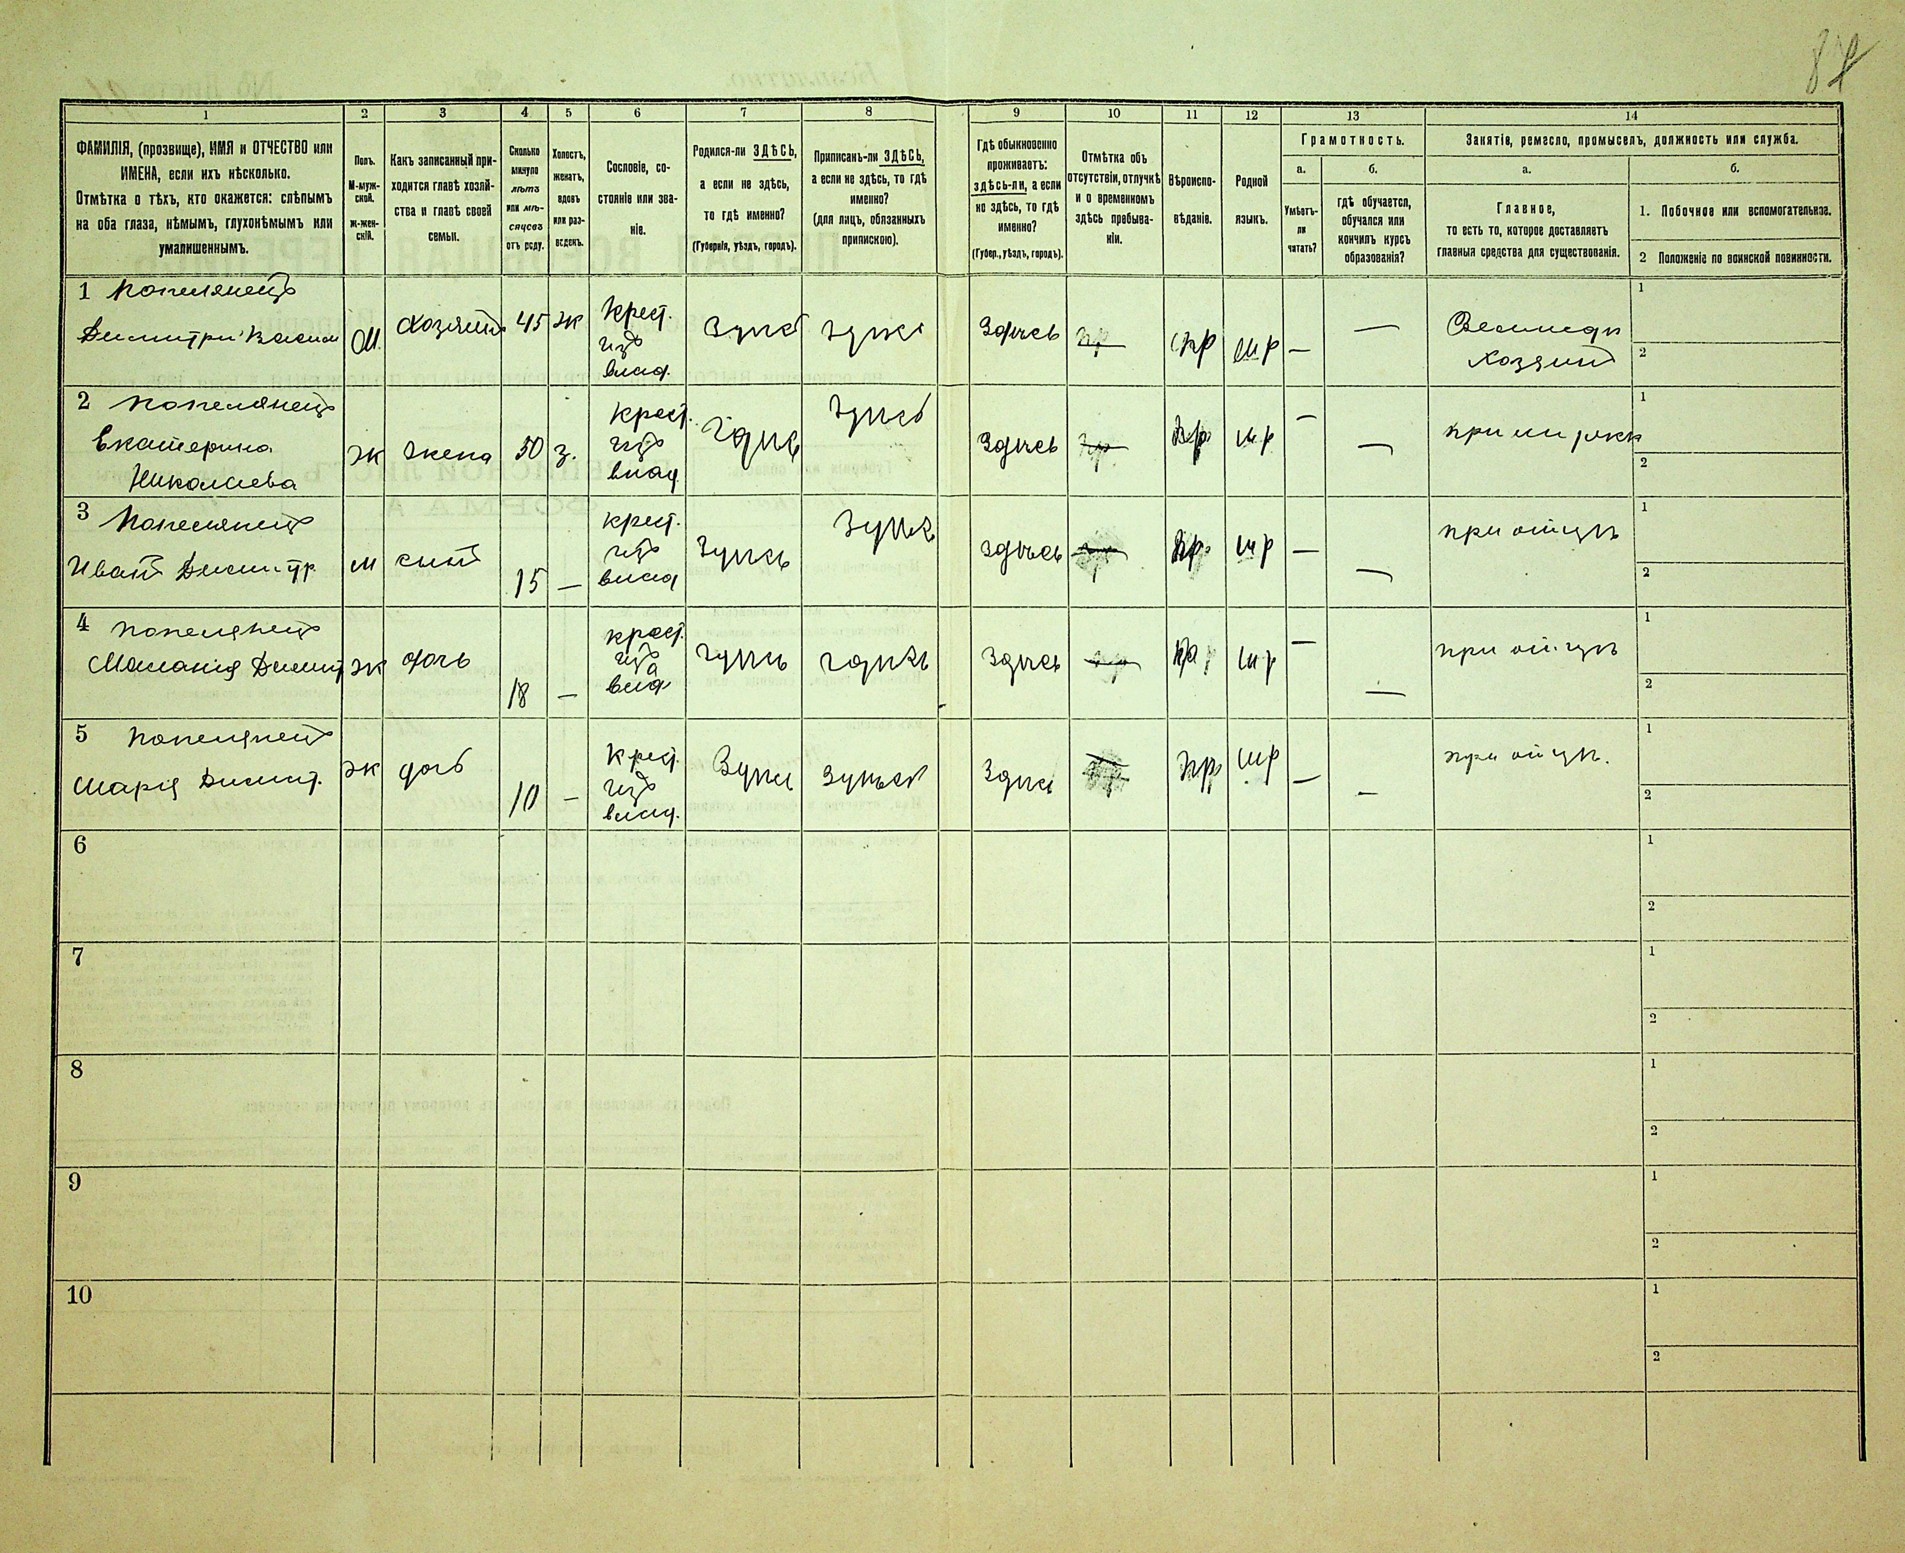 87
1 2 3 4 5 6 7 8 9 10 11 12 13 14
ФАМИЛІЯ, (прозвище), ИМЯ и ОТЧЕСТВО или
ИМЕНА, если ихъ нѣсколько.
Отмѣтка о тѣхъ, кто окажется: слѣпымъ
на оба глаза, нѣмымъ, глухонѣмымъ или
умалишеннымъ.
Полъ.
М-муж-
ской.
ж-жен-
скій.
Какъ записанный при-
ходится главѣ хозяй-
ства и главѣ своей
семьи.
Сколько
минуло
лѣтъ
или мѣ-
сяцевъ
отъ роду.
Холостъ,
женатъ,
вдовъ
или раз-
веденъ.
Сословіе, со-
стояніе или зва-
ніе.
Родился-ли ЗДѢСЬ,
а если не здѣсь,
то гдѣ именно?
(Губернія, уѣздъ, городъ).
Приписанъ-ли ЗДѢСЬ,
а если не здѣсь, то гдѣ
именно?
(для лицъ, обязанныхъ
припискою).
Гдѣ обыкновенно
проживаетъ:
здѣсь-ли, а если
не здѣсь, то гдѣ
именно?
(Губер., уѣздъ, городъ).
Отмѣтка объ
отсутствіи, отлучкѣ
и о временномъ
здѣсь пребыва-
ніи.
Вѣроиспо-
вѣданіе.
Родной
языкъ.
Грамотность.
а.
Умѣетъ-
ли
читать?
б.
гдѣ обучается,
обучался или
кончилъ курсъ
образованія?
Занятіе, ремесло, промыселъ, должность или служба.
а.
Главное,
то есть то, которое доставляетъ
главныя средства для существованія.
б.
1. Побочное или вспомогательное.
2 Положеніе по воинской повинности.
1 Попелянецъ
Димитри Васил
М. Хозяинъ 45 ж
Крест.
изъ
влад.
Здѣсь Здѣсь Здѣсь пр мр — —
Хозяинъ
1
2
2 Попелянецъ
Екатерина
Николаева
ж жена 50 з.
Крест.
изъ
влад.
Здѣсь Здѣсь Здѣсь пр мр — —
при мужѣ
1
2
3 Попелянецъ
Иванъ Димитр
м сынъ 15 —
крест.
изъ
влад
Здѣсь Здѣсь Здѣсь пр мр — —
при отцѣ
1
2
4 Попелянецъ
Маланія Димит
ж дочь 18 —
крест.
изъ
влад
Здѣсь Здѣсь Здѣсь пр мр — —
при отцѣ
1
2
5 Попелянецъ
Марія Димит.
ж дочь 10 —
Крест.
изъ
влад.
Здѣсь Здѣсь Здѣсь пр мр — —
при отцѣ.
1
2
6
1
2
7
1
2
8
1
2
9
1
2
10
1
2